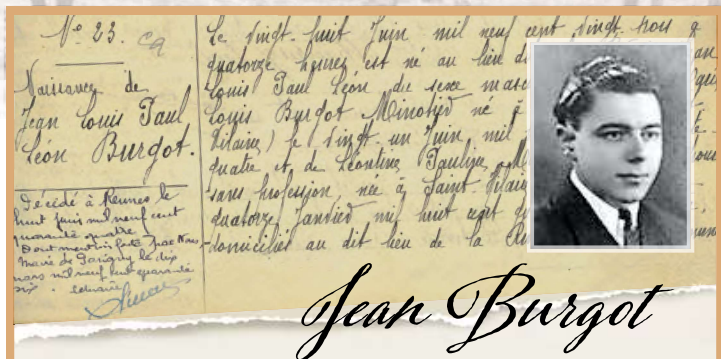 N° 23.
Naissance de
Jean Louis Paul
Léon Burgot.
Décédé à Rennes le
huit juin mil neuf cent
quarante quatre
Dont mention faite par Nous,
Maire de Parigny le dix
mars mil neuf cent quarante
six.
Le vingt-huit Juin mil neuf cent vingt-trois à
quatorze heures est né au lieu
Louis Paul Léon du sexe
Louis Burgot Minotier né à
Hilaire) le vingt-un Juin mil
quatre et de Léontine Pauline
sans profession, née à Saint-Hilaire
quatorze Janvier mil huit cent
domiciliés au dit lieu de la
Jean Burgot